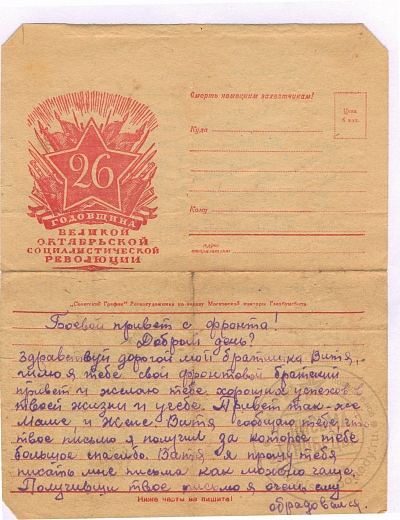 Смерть немецким захватчикам!
Куда
Цена
Кому
26
ГОДОВЩИНА
ВЕЛИКОЙ
ОКТЯБРЬСКОЙ
СОЦИАЛИСТИЧЕСКОЙ
РЕВОЛЮЦИИ
Адрес
отправителя
Боевой привет с фронта!
Добрый день?
Здравствуй дорогой мой братишка Витя,
шлю я тебе свой фронтовой братский
привет и желаю тебе хороших успехов в
твоей жизни и учебе. Привет так-же
Маме, и Жене. Витя сообщаю тебе, что
твое письмо я получил за которое тебе
большое спасибо. Витя я прошу тебя
писать мне письма как можно чаще.
Получивши твое письмо я очень
обрадовался.
Ниже части не пишите!